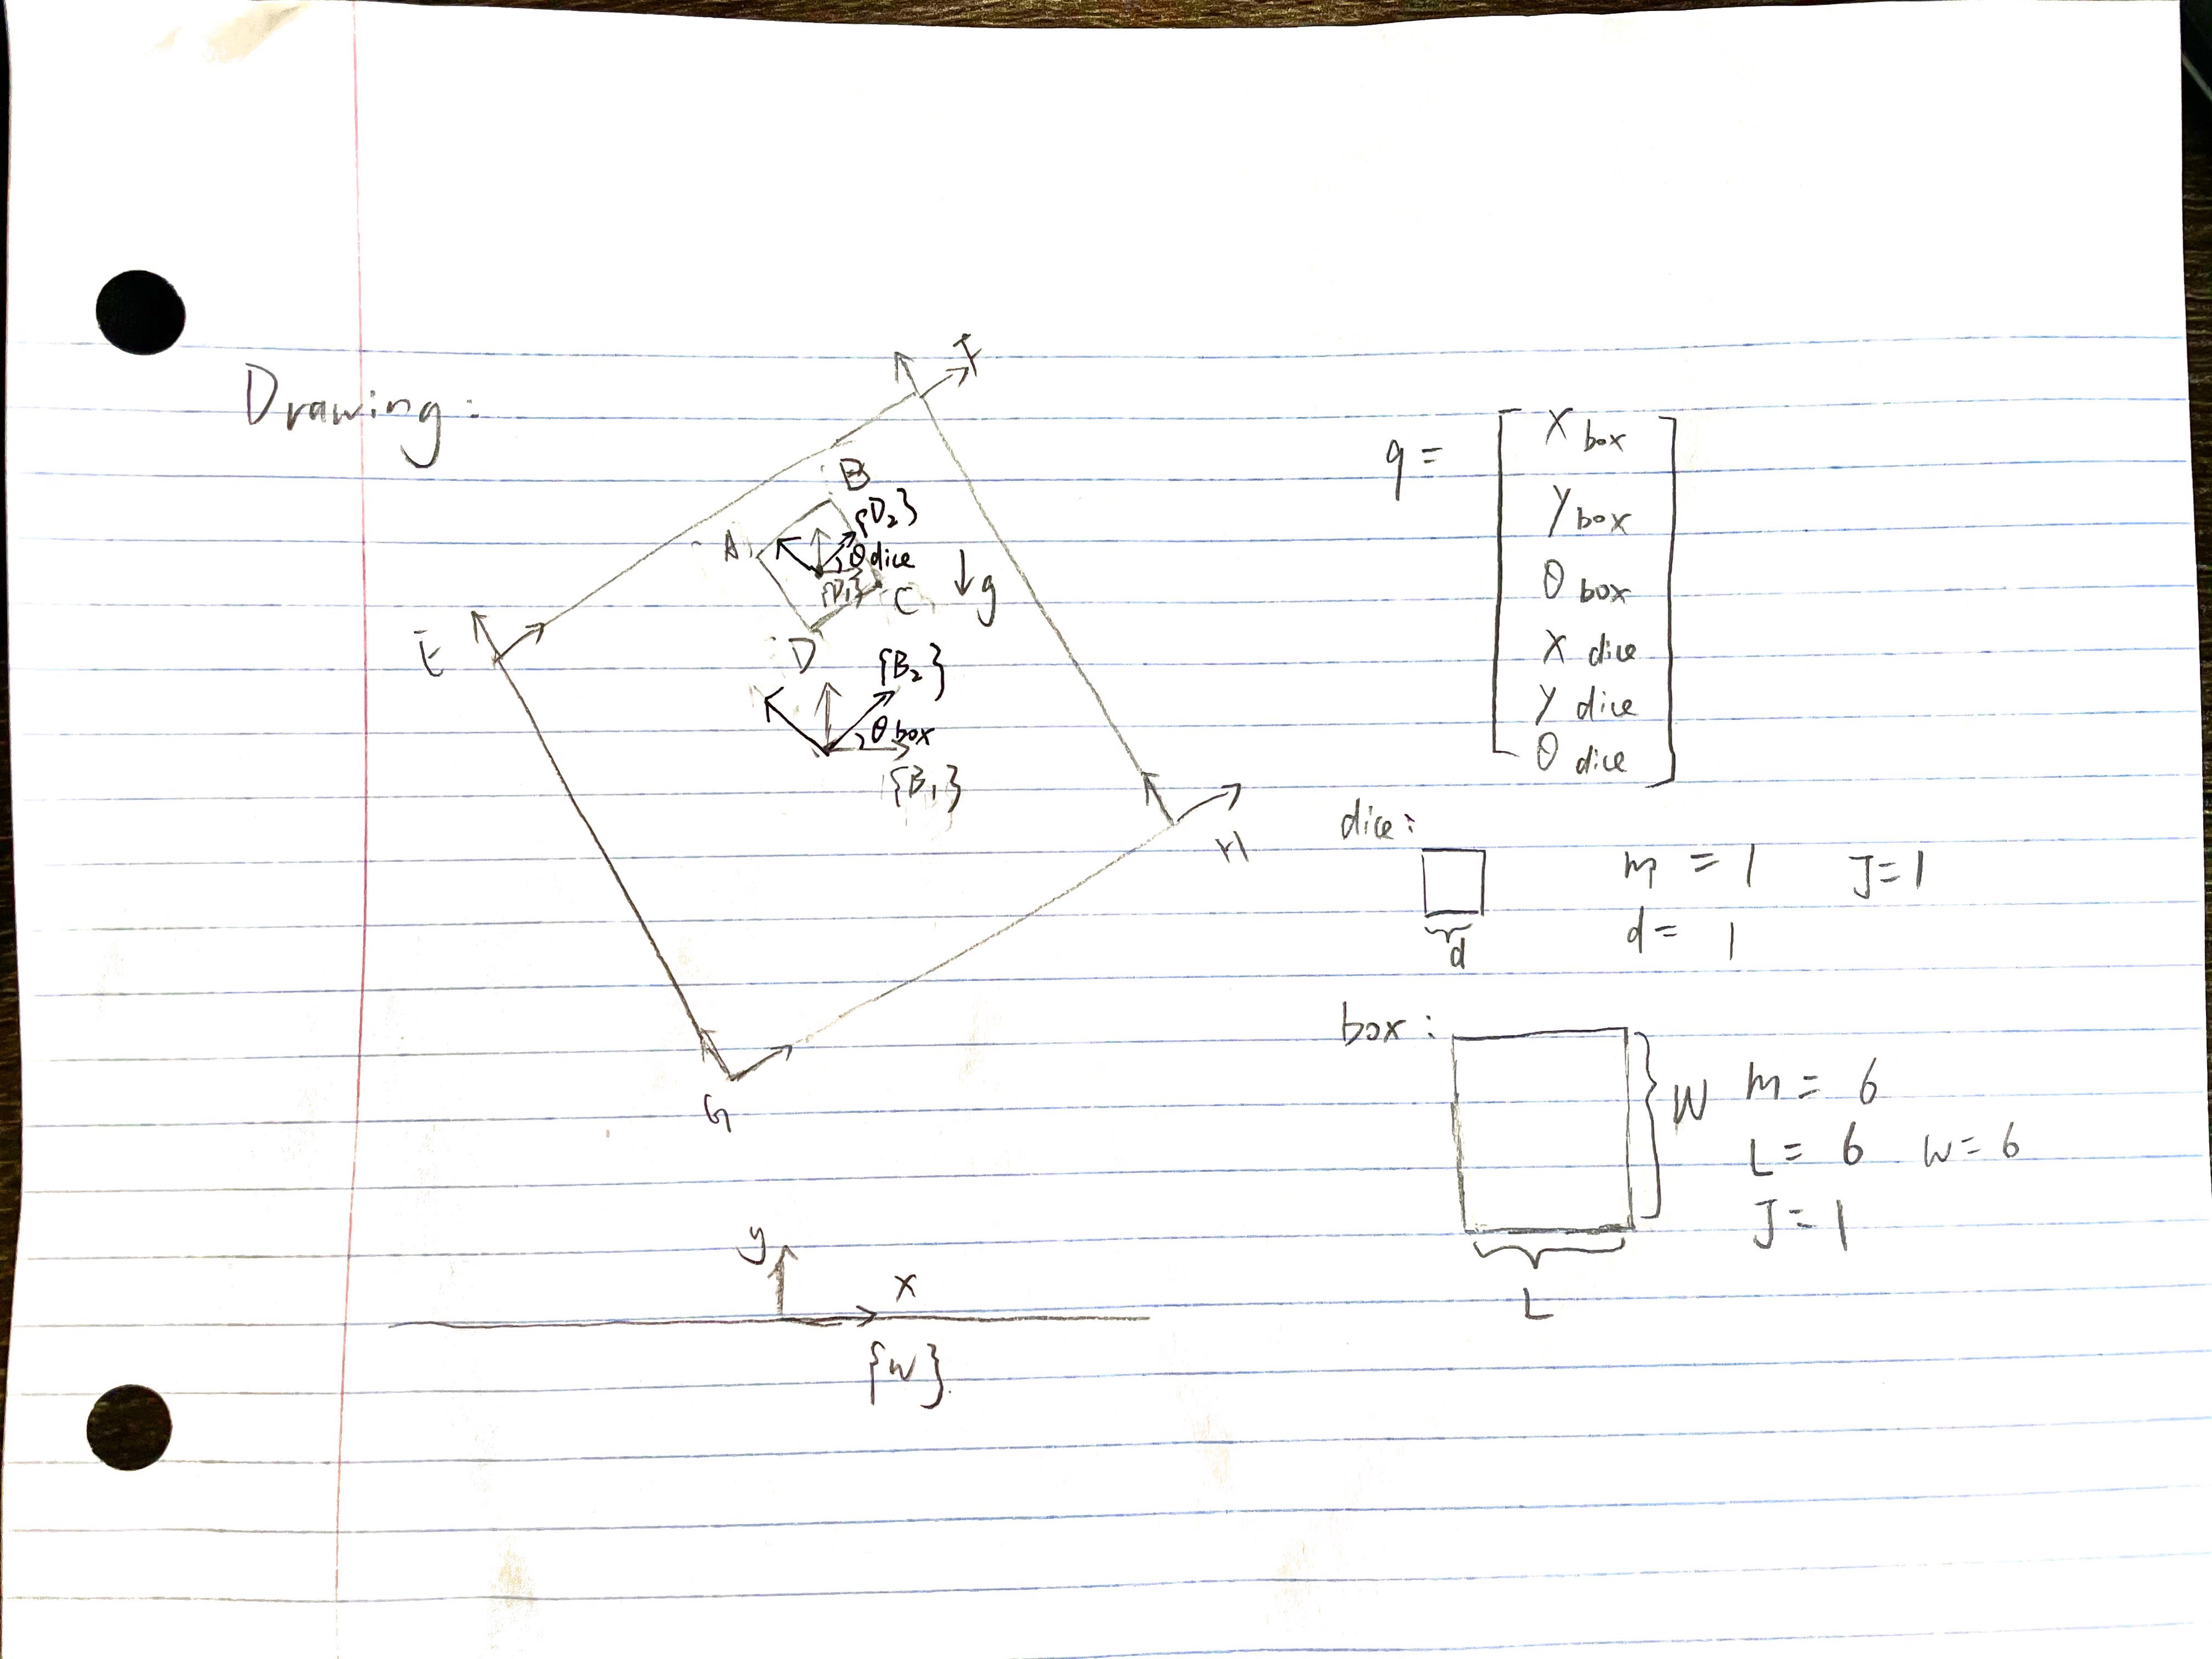 Drawing:
F
B
{D₂}
A
θ dice
{D₁}
C
g
E
D
{B₂}
θ box
{B₁}
H
G
y
x
{W}
q =
x box
y box
θ box
x dice
y dice
θ dice
dice:
m = 1 J=1
d
d = 1
box:
W
m = 6
L = 6 W=6
J=1
L